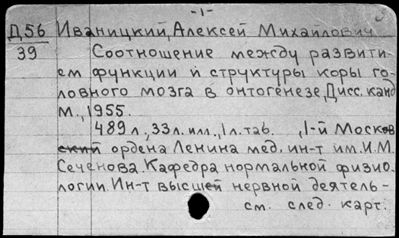 -1-
Д56 Иваницкий, Алексей Михайлович
39 Соотношение между развити-
ем функции и структуры коры го-
ловного мозга в онтогенезе, Дисс. канд
М., 1955.
489л., 33л. илл., 1л. таб. , 1-й Москов
ский ордена Ленина мед. ин-т им. И.М.
Сеченова. Кафедра нормальной физио-
логии. Ин-т высшей нервной деятель-
см. след. карт.